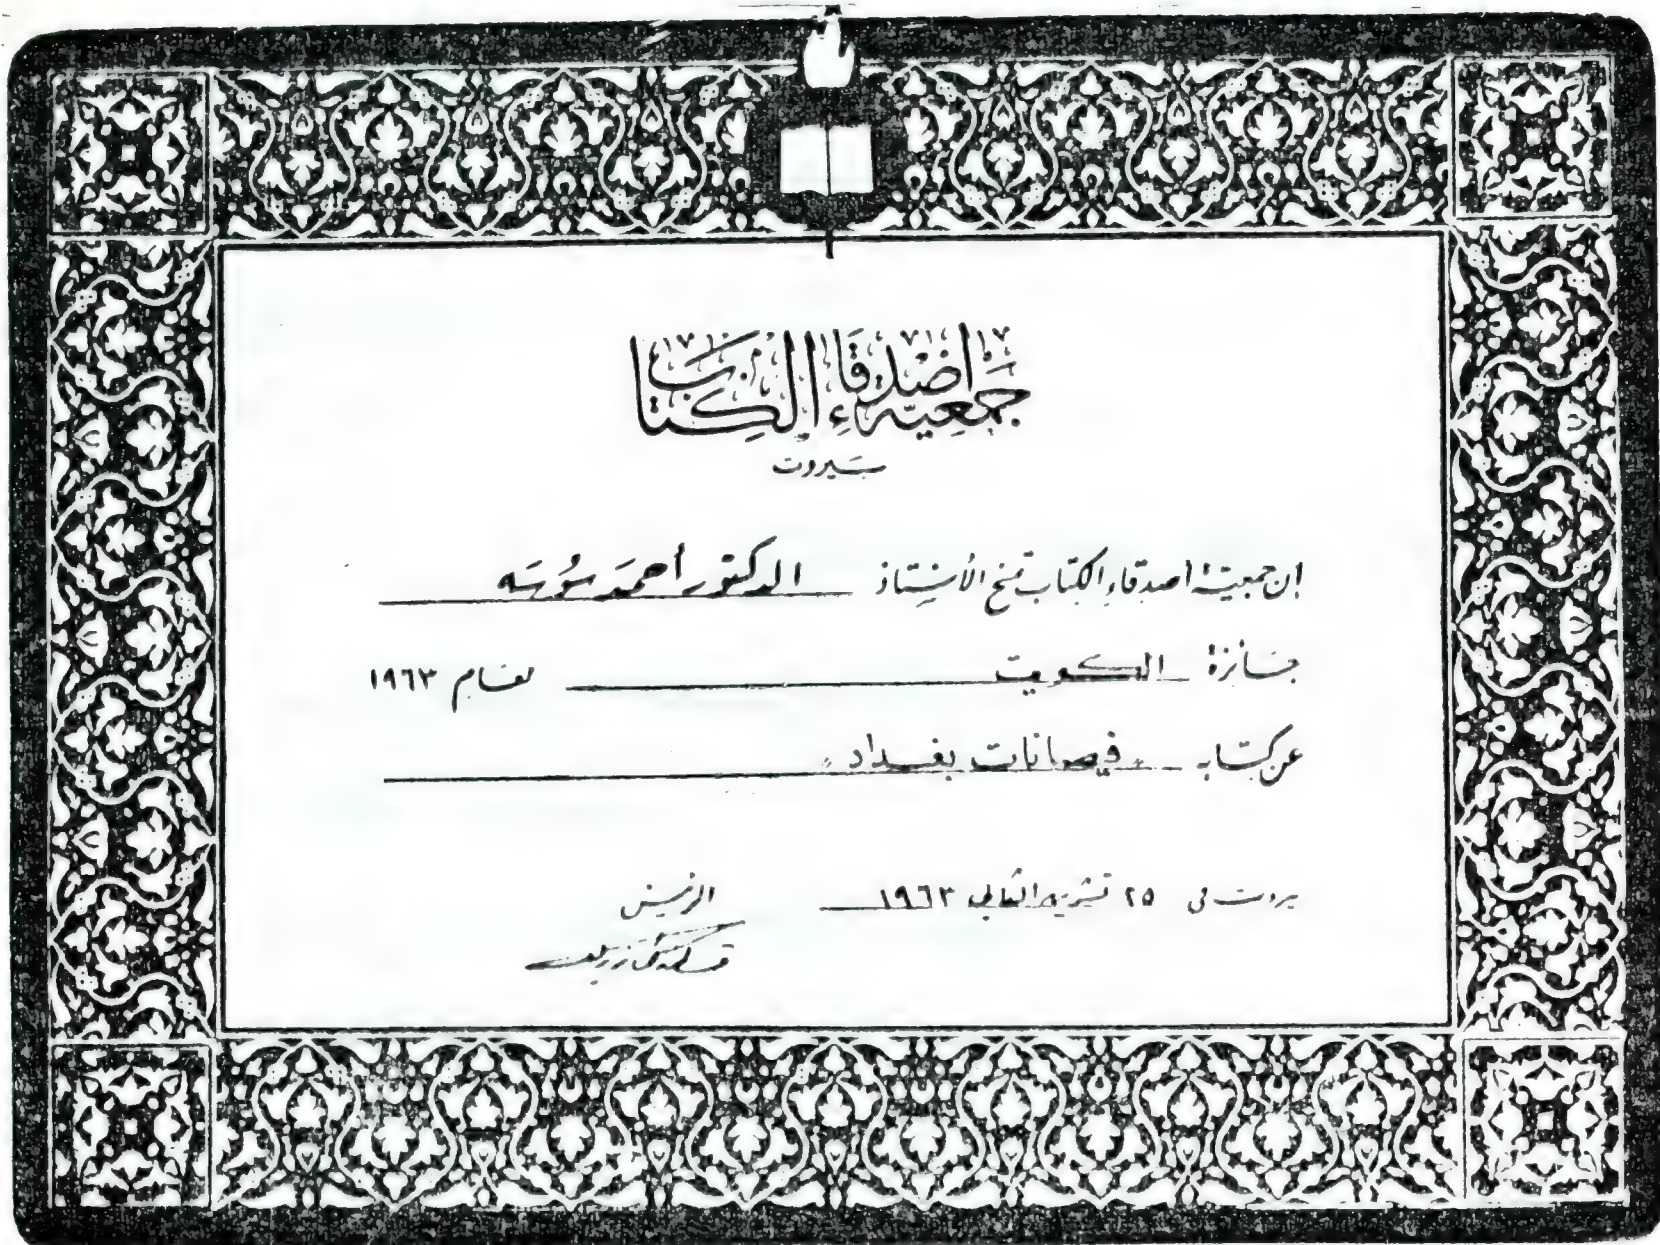 جمعية أصدقاء الكتاب
بيروت
ان جمعية اصدقاء الكتاب تمنح الأستاذ الدكتور أحمد سوسه
جائزة الكويت لعام ١٩٦٣
عن كتابه «فيضانات بغداد»
بيروت في ٢٥ تشرين الثاني ١٩٦٣
الرئيس